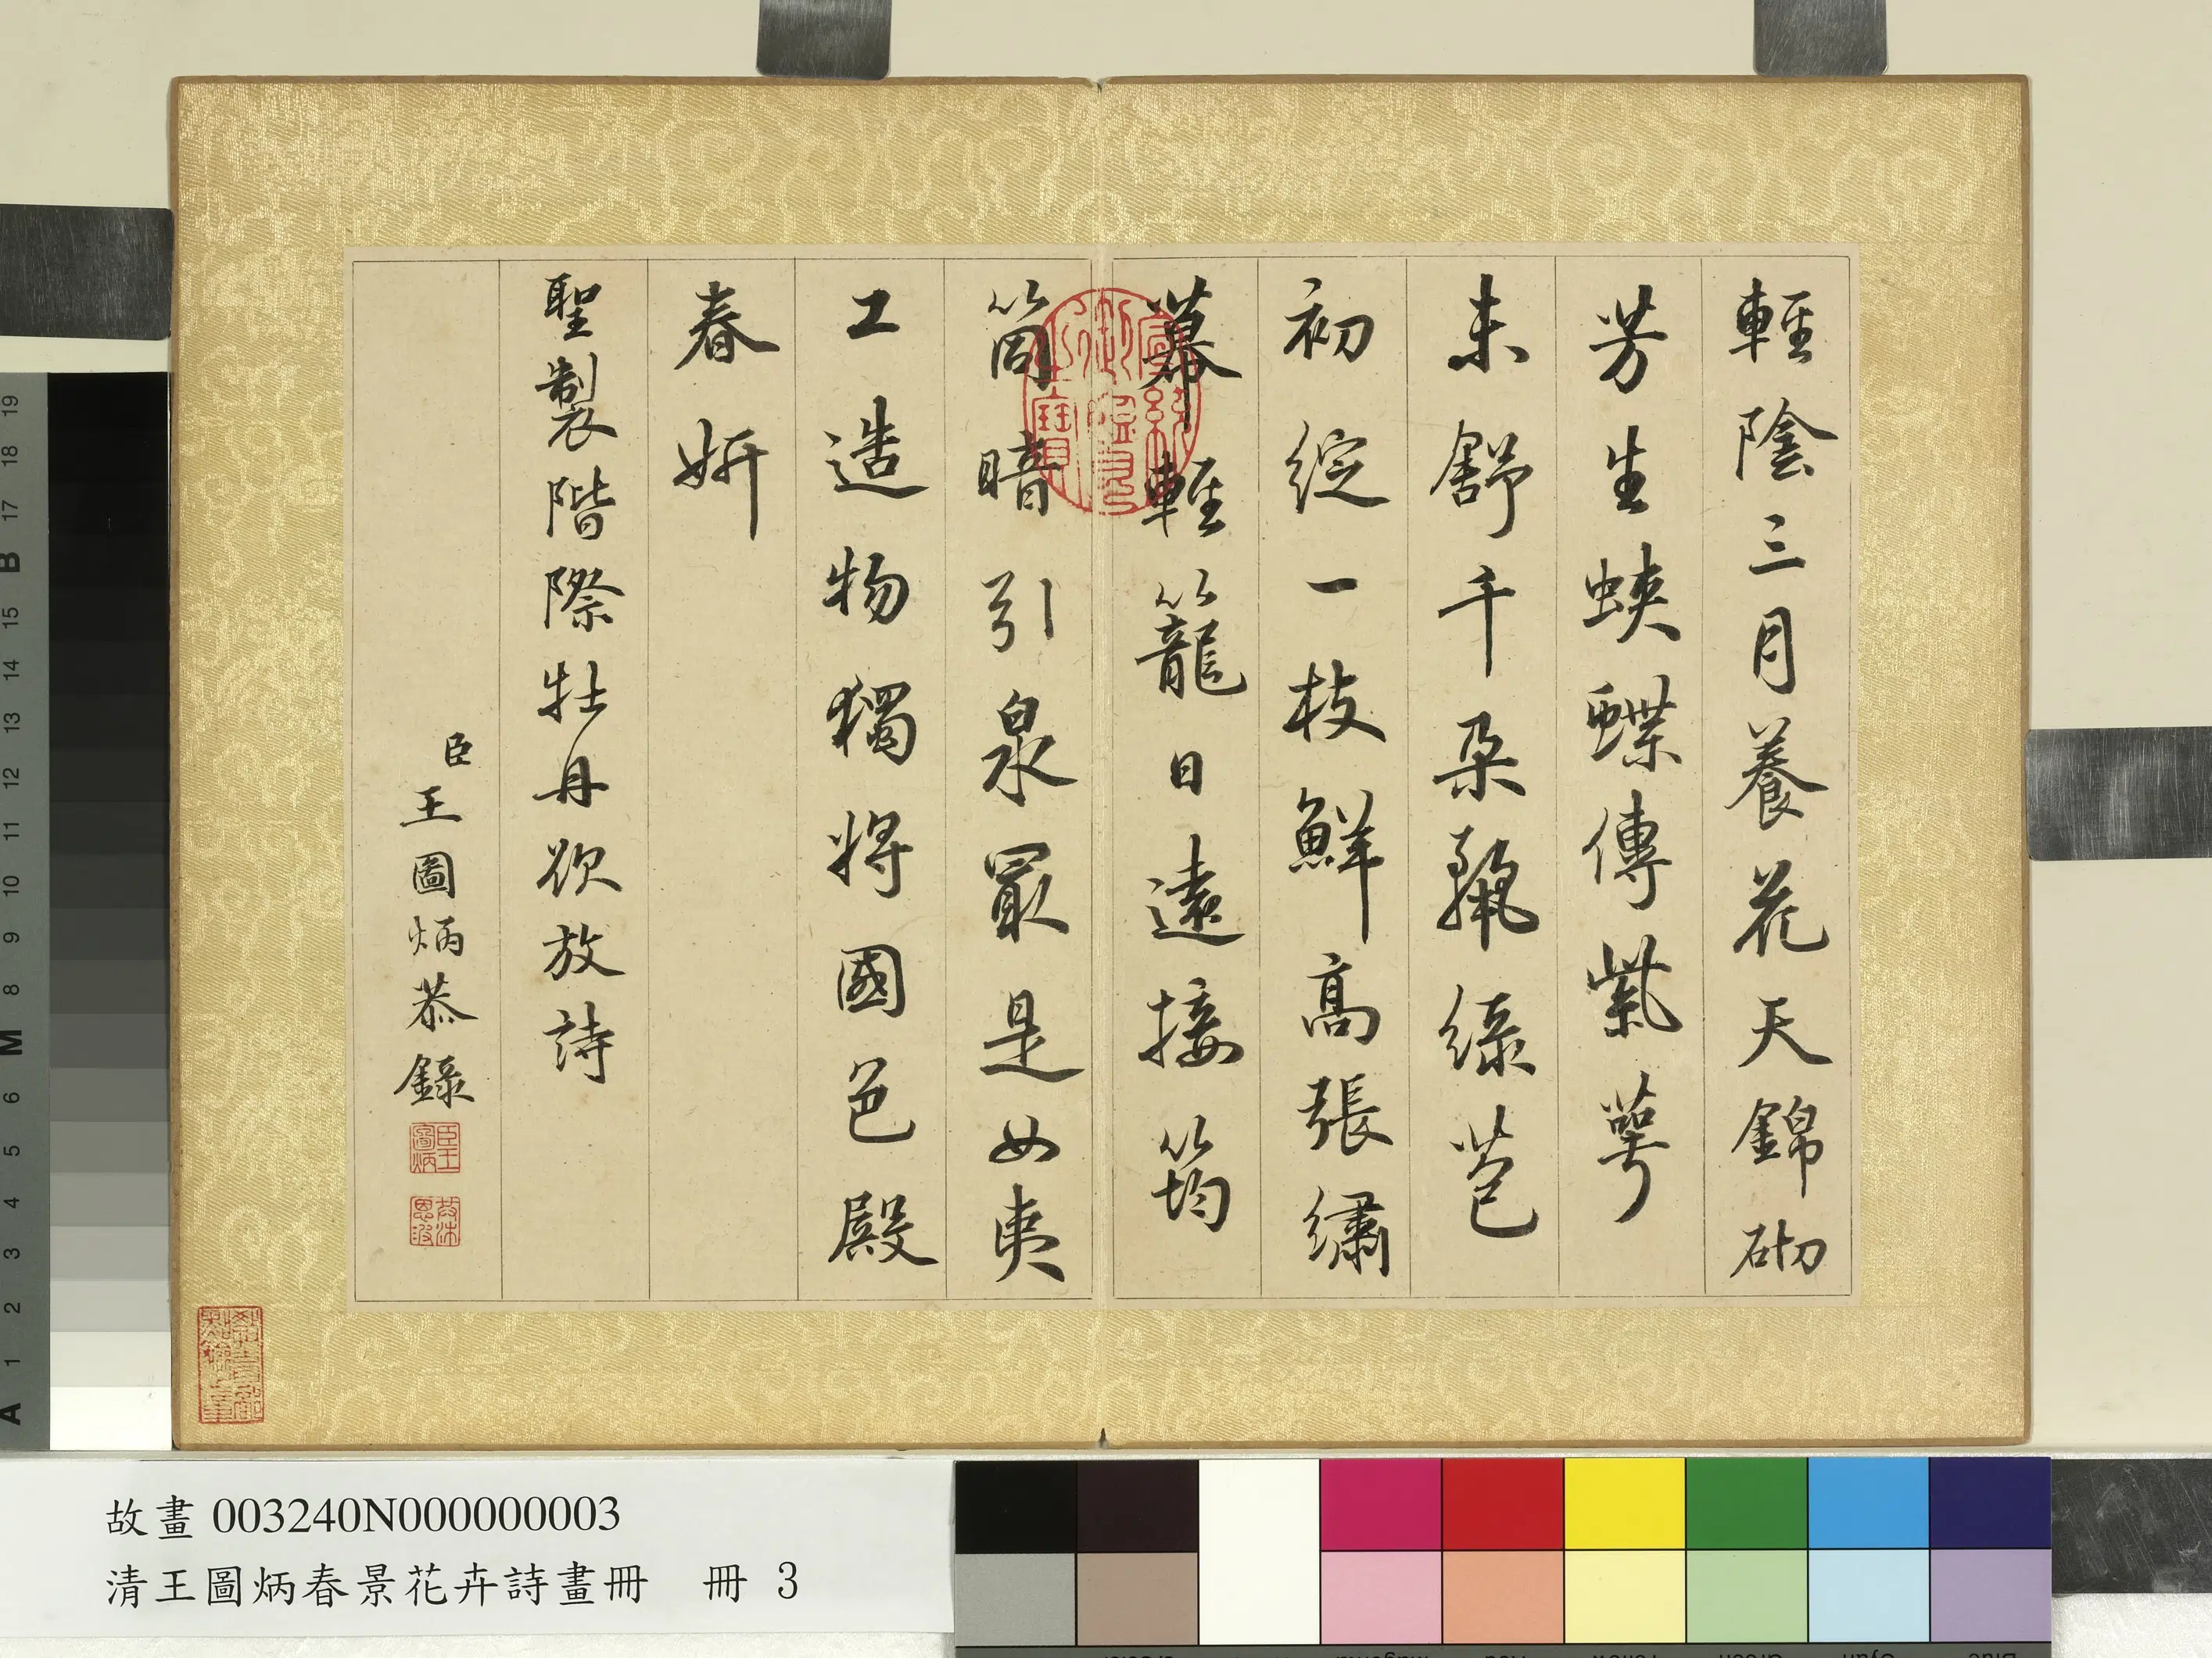 輕陰三月養花天錦砌
芳生蛺蝶傳紫萼
未舒千朶豔綠苞
初綻一枝鮮高張繡
幕輕籠日遠接筠
筒暗引泉冣是女夷
工造物獨將國色殿
春妍
聖製階際牡丹欲放詩
臣王圖炳恭錄
臣王圖炳
故畫 003240N000000003
清王圖炳春景花卉詩畫冊 冊 3
19
18
17
B
15
14
13
12
11
10
9
8
M
6
5
4
3
2
1
A